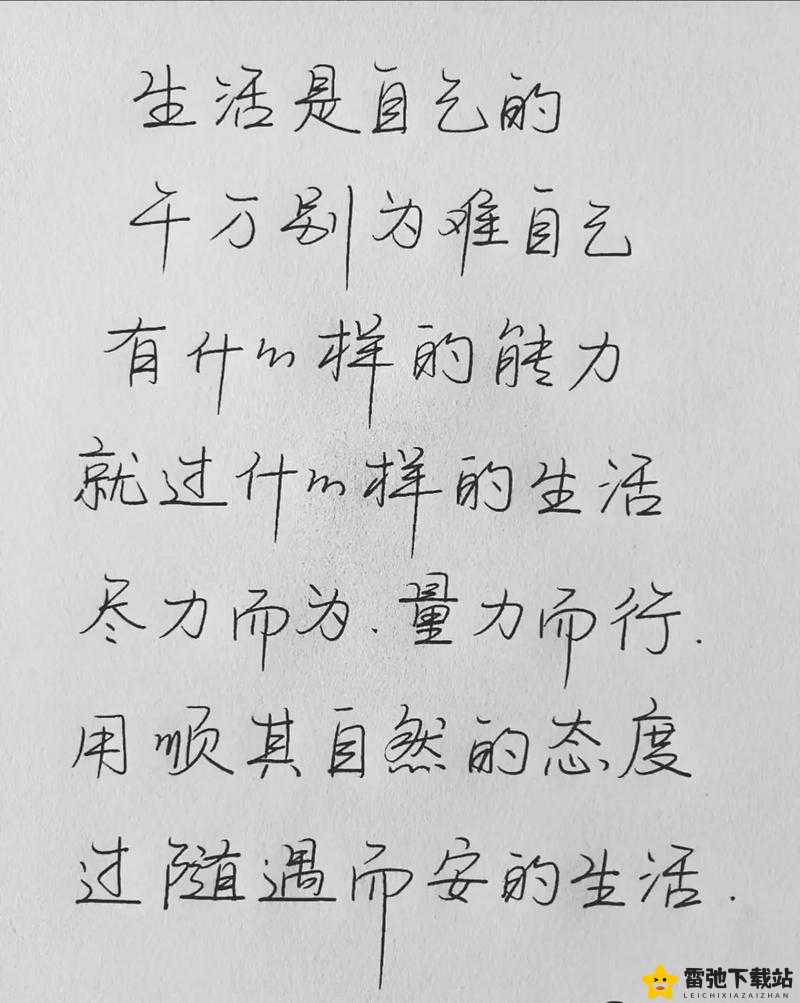 生活是自己的
千万别为难自己
有什么样的能力
就过什么样的生活
尽力而为.量力而行.
用顺其自然的态度
过随遇而安的生活.
雷弛下载站
LEICHIXIAZAIZHAN